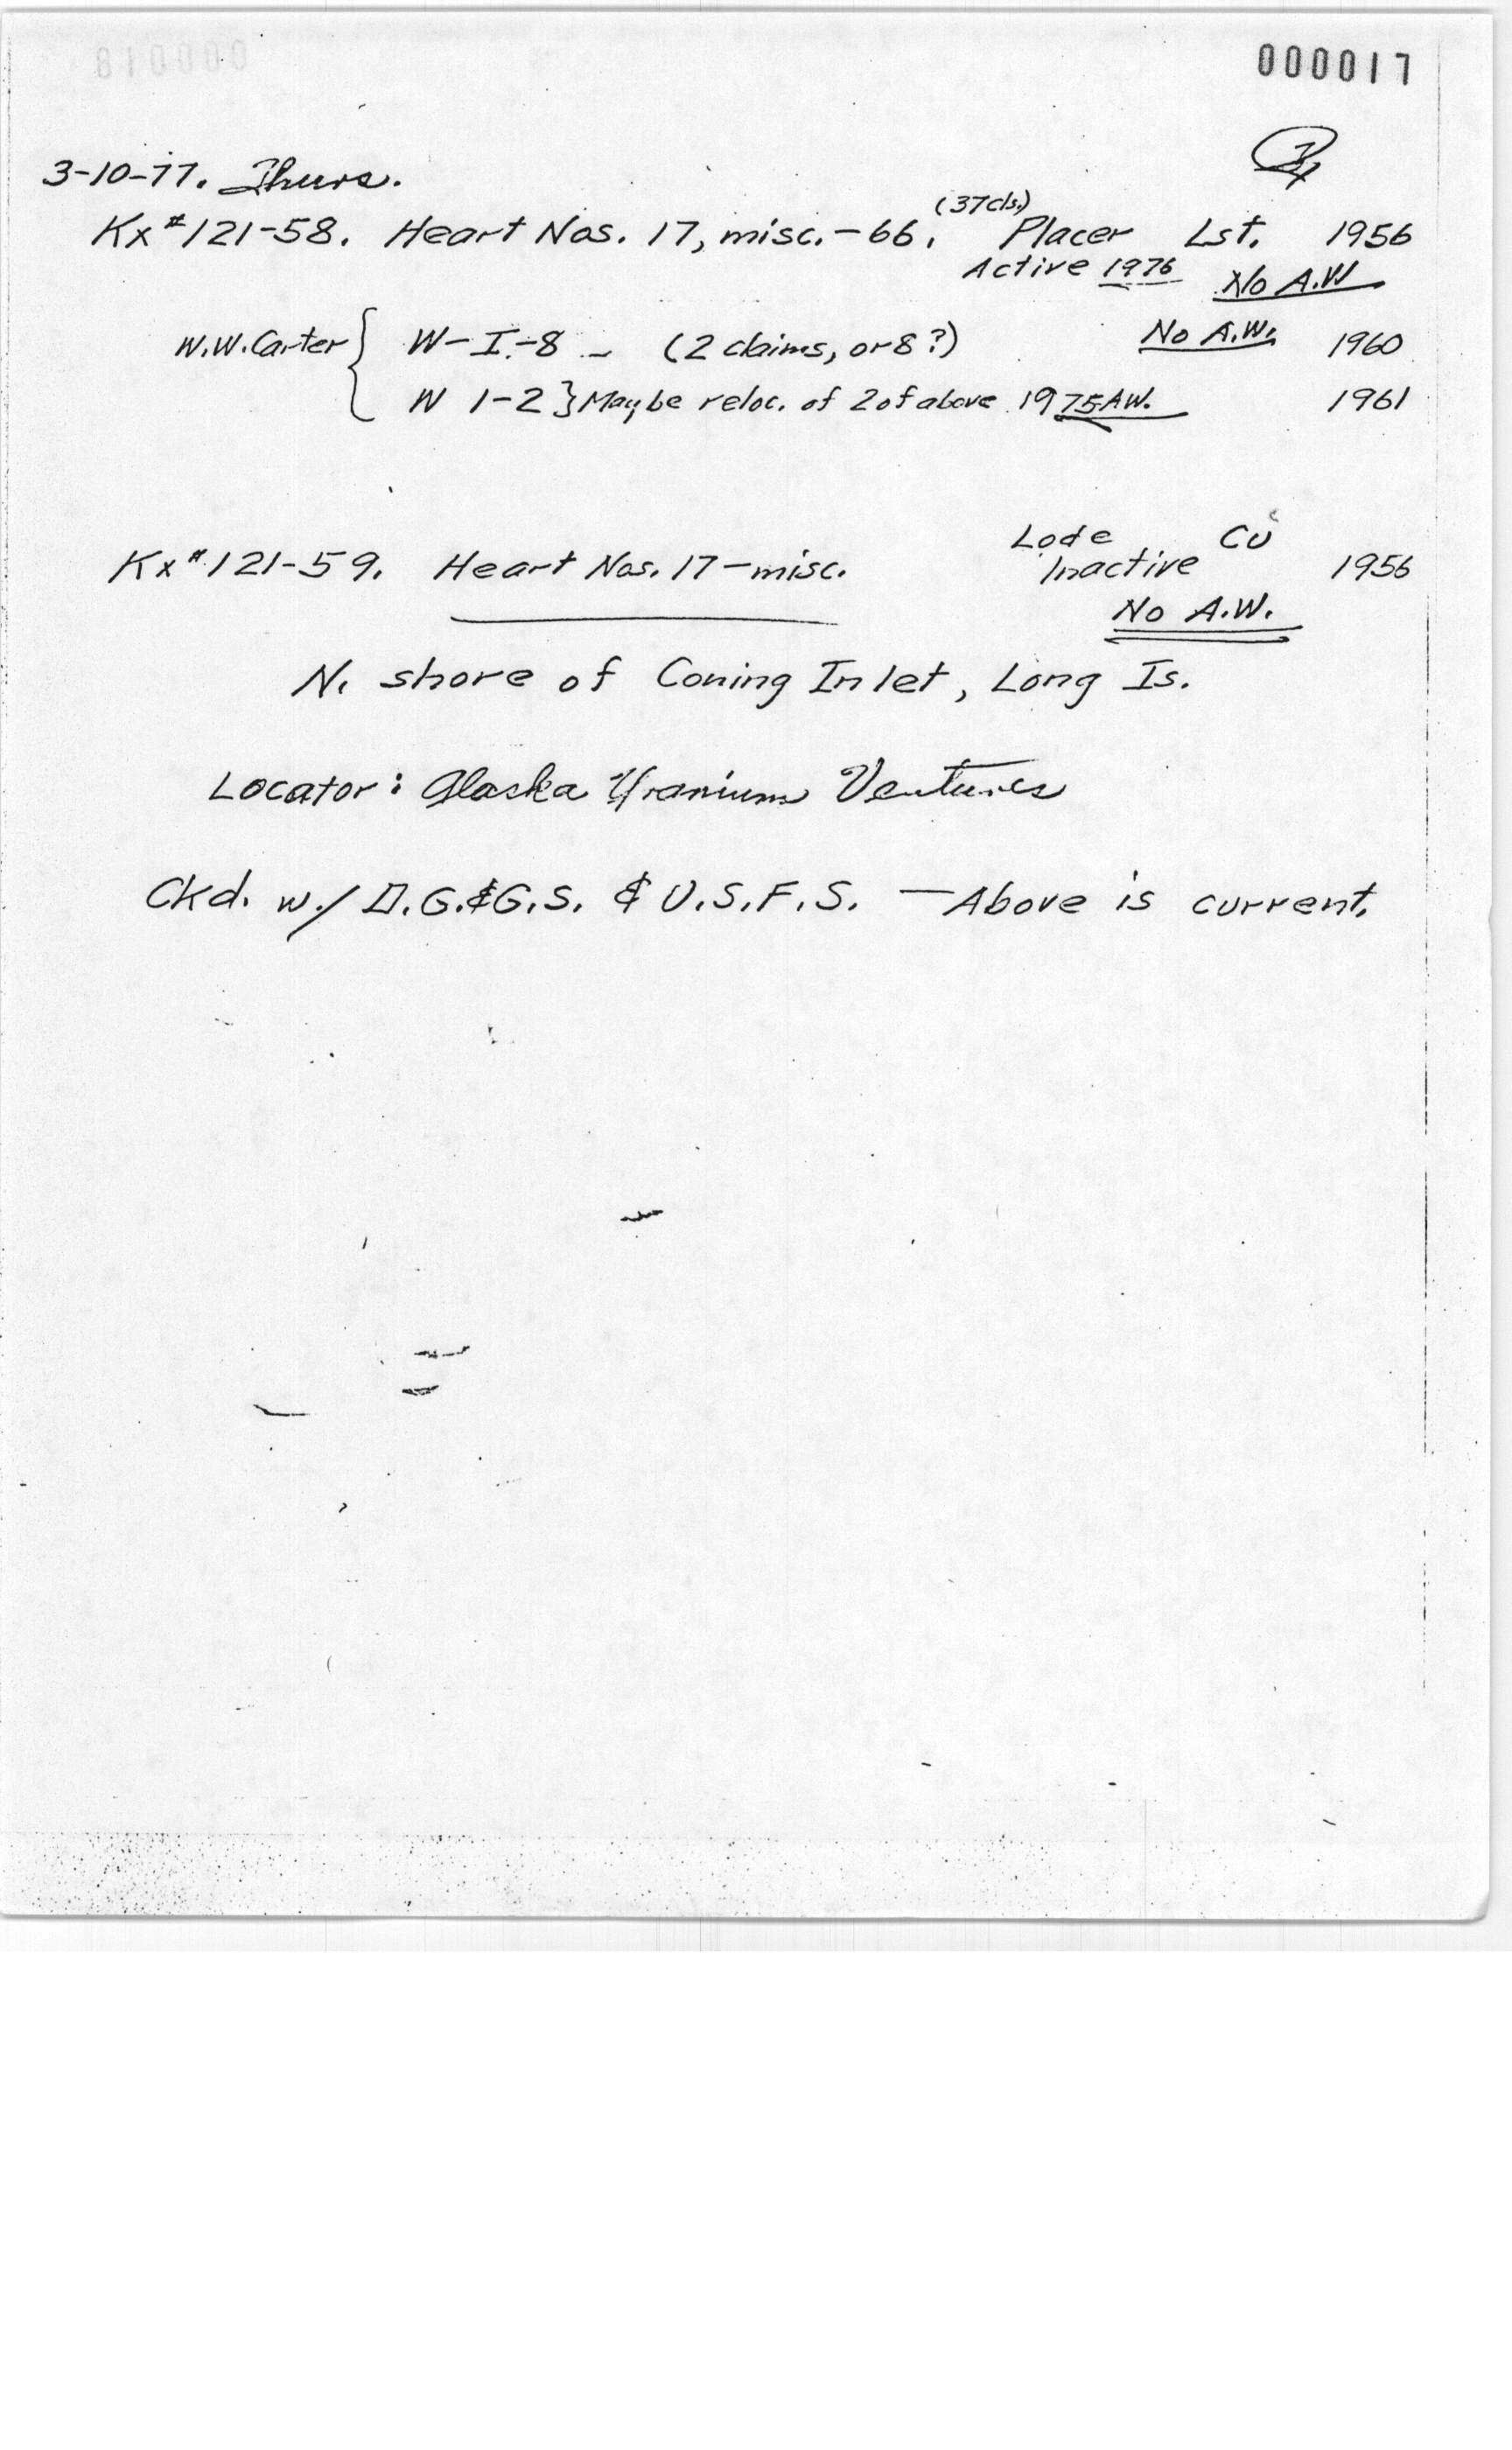 000017
3-10-77. Thurs.
Kx#121-58. Heart Nos. 17, misc. - 66. (37cls.) Placer Lst. 1956
Active 1976 No A.W
W.W.Carter { W-I-8 - (2 claims, or 8?) No A.W. 1960
W 1-2 } Maybe reloc. of 2 of above 1975 AW. 1961
Lode Cu
Kx#121-59. Heart Nos. 17-misc. Inactive 1956
No A.W.
N. shore of Coning Inlet, Long Is.
Locator: Alaska Uranium Ventures
Ckd. w./ D.G.&G.S. & U.S.F.S. — Above is current.